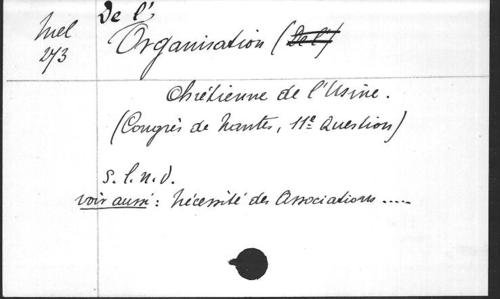 De l'
Mel
273
Organisation (De l')
Chrétienne de l'Usine.
(Congrès de Nantes, 11e Question)
s. l. n. d.
voir aussi : Nécessité des Associations .....